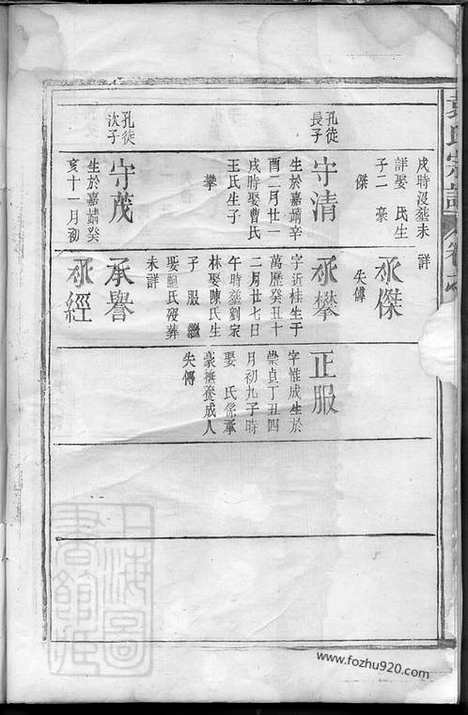 戌時沒塟未詳
詳娶 氏生
子二 豪
傑
孔徒長子
守清
生於嘉靖辛
酉二月廿一
戌時娶曹氏
王氏生子
攀
孔徒次子
守茂
生於嘉靖癸
亥十一月初
承傑
失傳
承攀
字近桂生于
萬歷癸丑十
二月廿七日
午時塟劉家
林娶陳氏生
子 服 繼
娶 氏歿葬
未詳
承譽
承經
正服
字惟成生於
崇貞丁丑四
月初九子時
娶 氏係承
豪撫養成人
失傳
上海圖書館藏
www.fozhu920.com